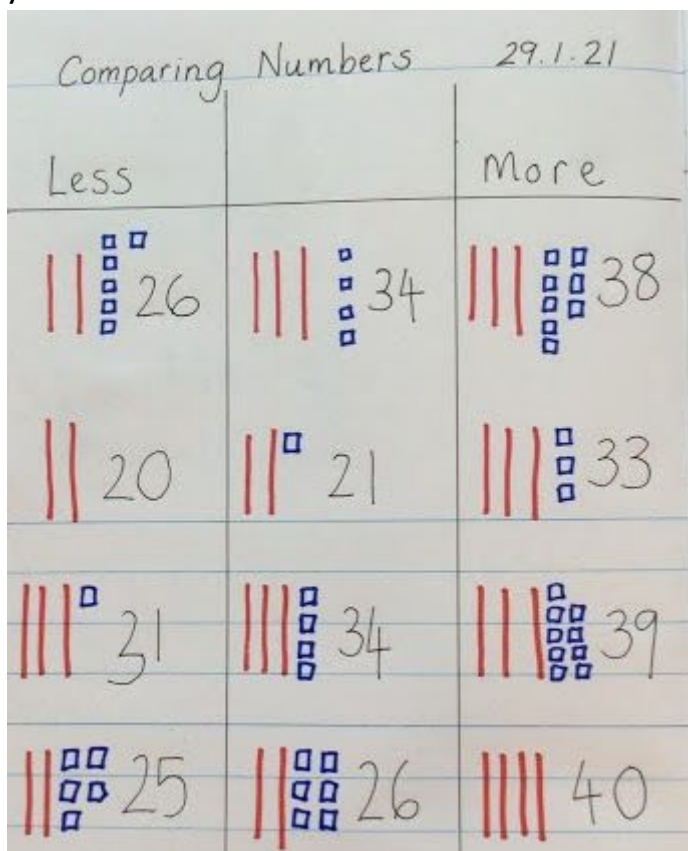 Comparing Numbers 29.1.21
Less More
26 34 38
20 21 33
31 34 39
25 26 40